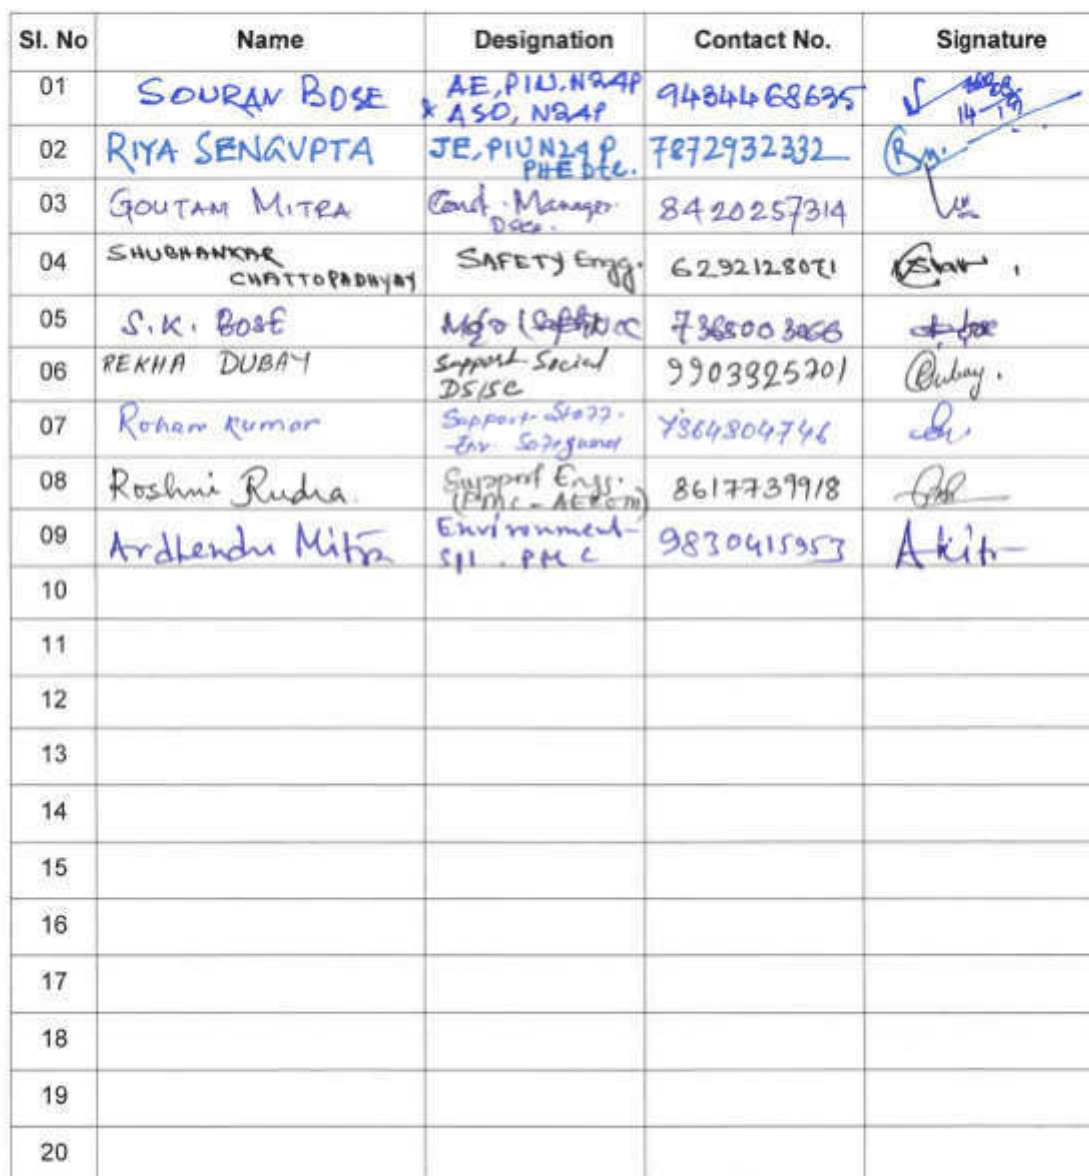 Sl. No Name Designation Contact No. Signature
01 SOURAV BOSE AE, PIU, N24P
& ASO, N24P 9434468635
02 RIYA SENGUPTA JE, PIU N24P
PHE Dte. 7872932332
03 GOUTAM MITRA Const. Manager 8420257314
04 SHUBHANKAR
CHATTOPADHYAY SAFETY Engg. 6292128071
05 S.K. BOSE
06 REKHA DUBAY Support Social
DSISC 9903925201 Dubay.
07 Rohan Kumar Support Staff.
Env Safeguard 7364804746
08 Roshni Rudra. Support Engg.
(PMC - AECOM) 8617739918
09 Ardhendu Mitra Environment
Spl. PMC 9830415953
10
11
12
13
14
15
16
17
18
19
20